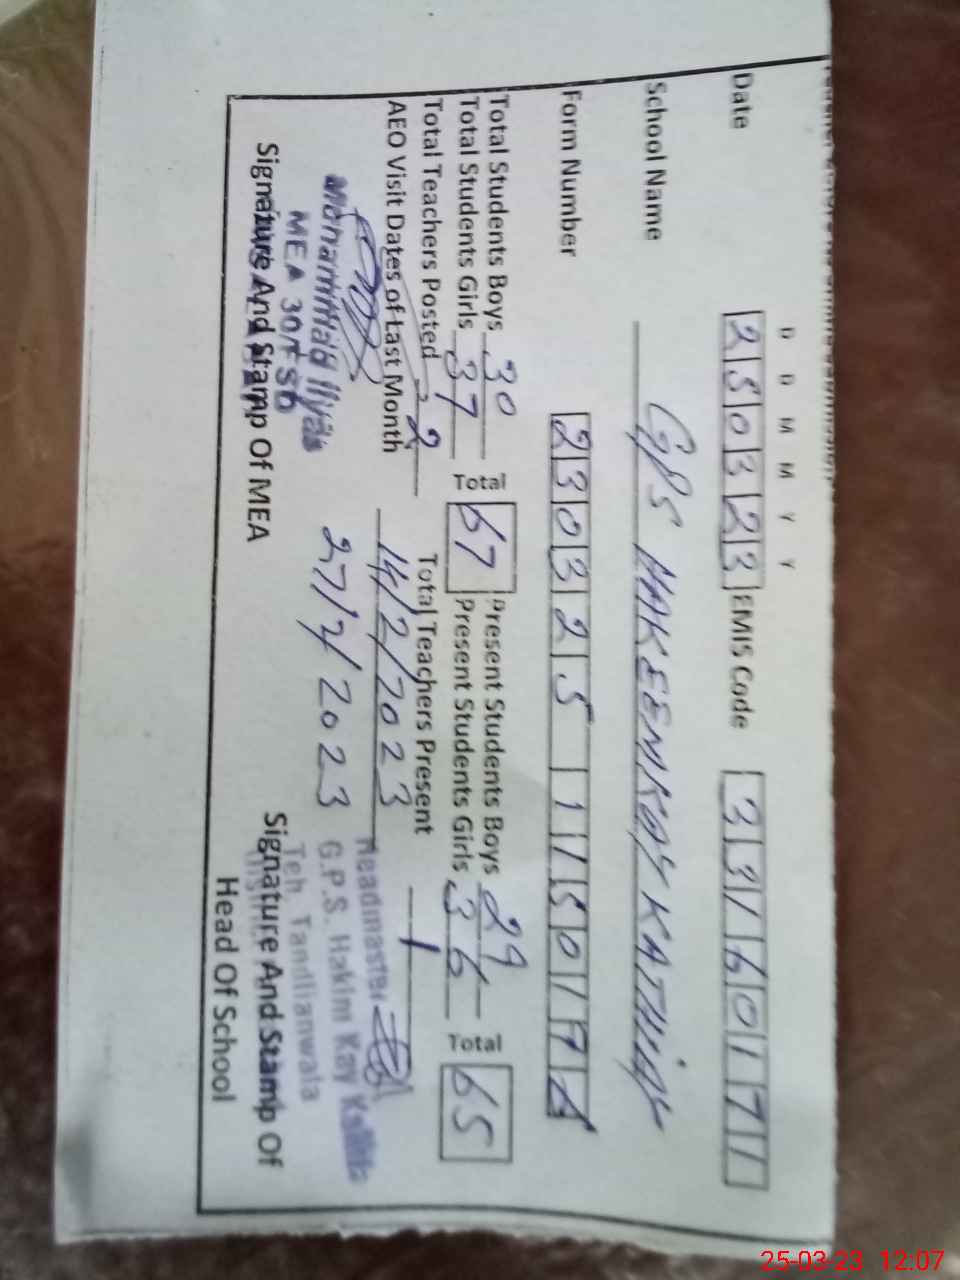 D D M M Y Y
Date 250323 EMIS Code 33160171
School Name GPS HAKEEM KAY KATHIAY
Form Number 230325 115017
Total Students Boys 30 Present Students Boys 29
Total Students Girls 37 Total 67 Present Students Girls 36 Total 65
Total Teachers Posted 2 Total Teachers Present 1
AEO Visit Dates of Last Month 14/2/2023
27/2/2023
Mohammad Ilyas
MEA 30/FSD
Signature And Stamp Of MEA
Headmaster
G.P.S. Hakim Kay Kathia
Teh. Tandlianwala
Signature And Stamp Of
Head Of School
25-03-23 12:07